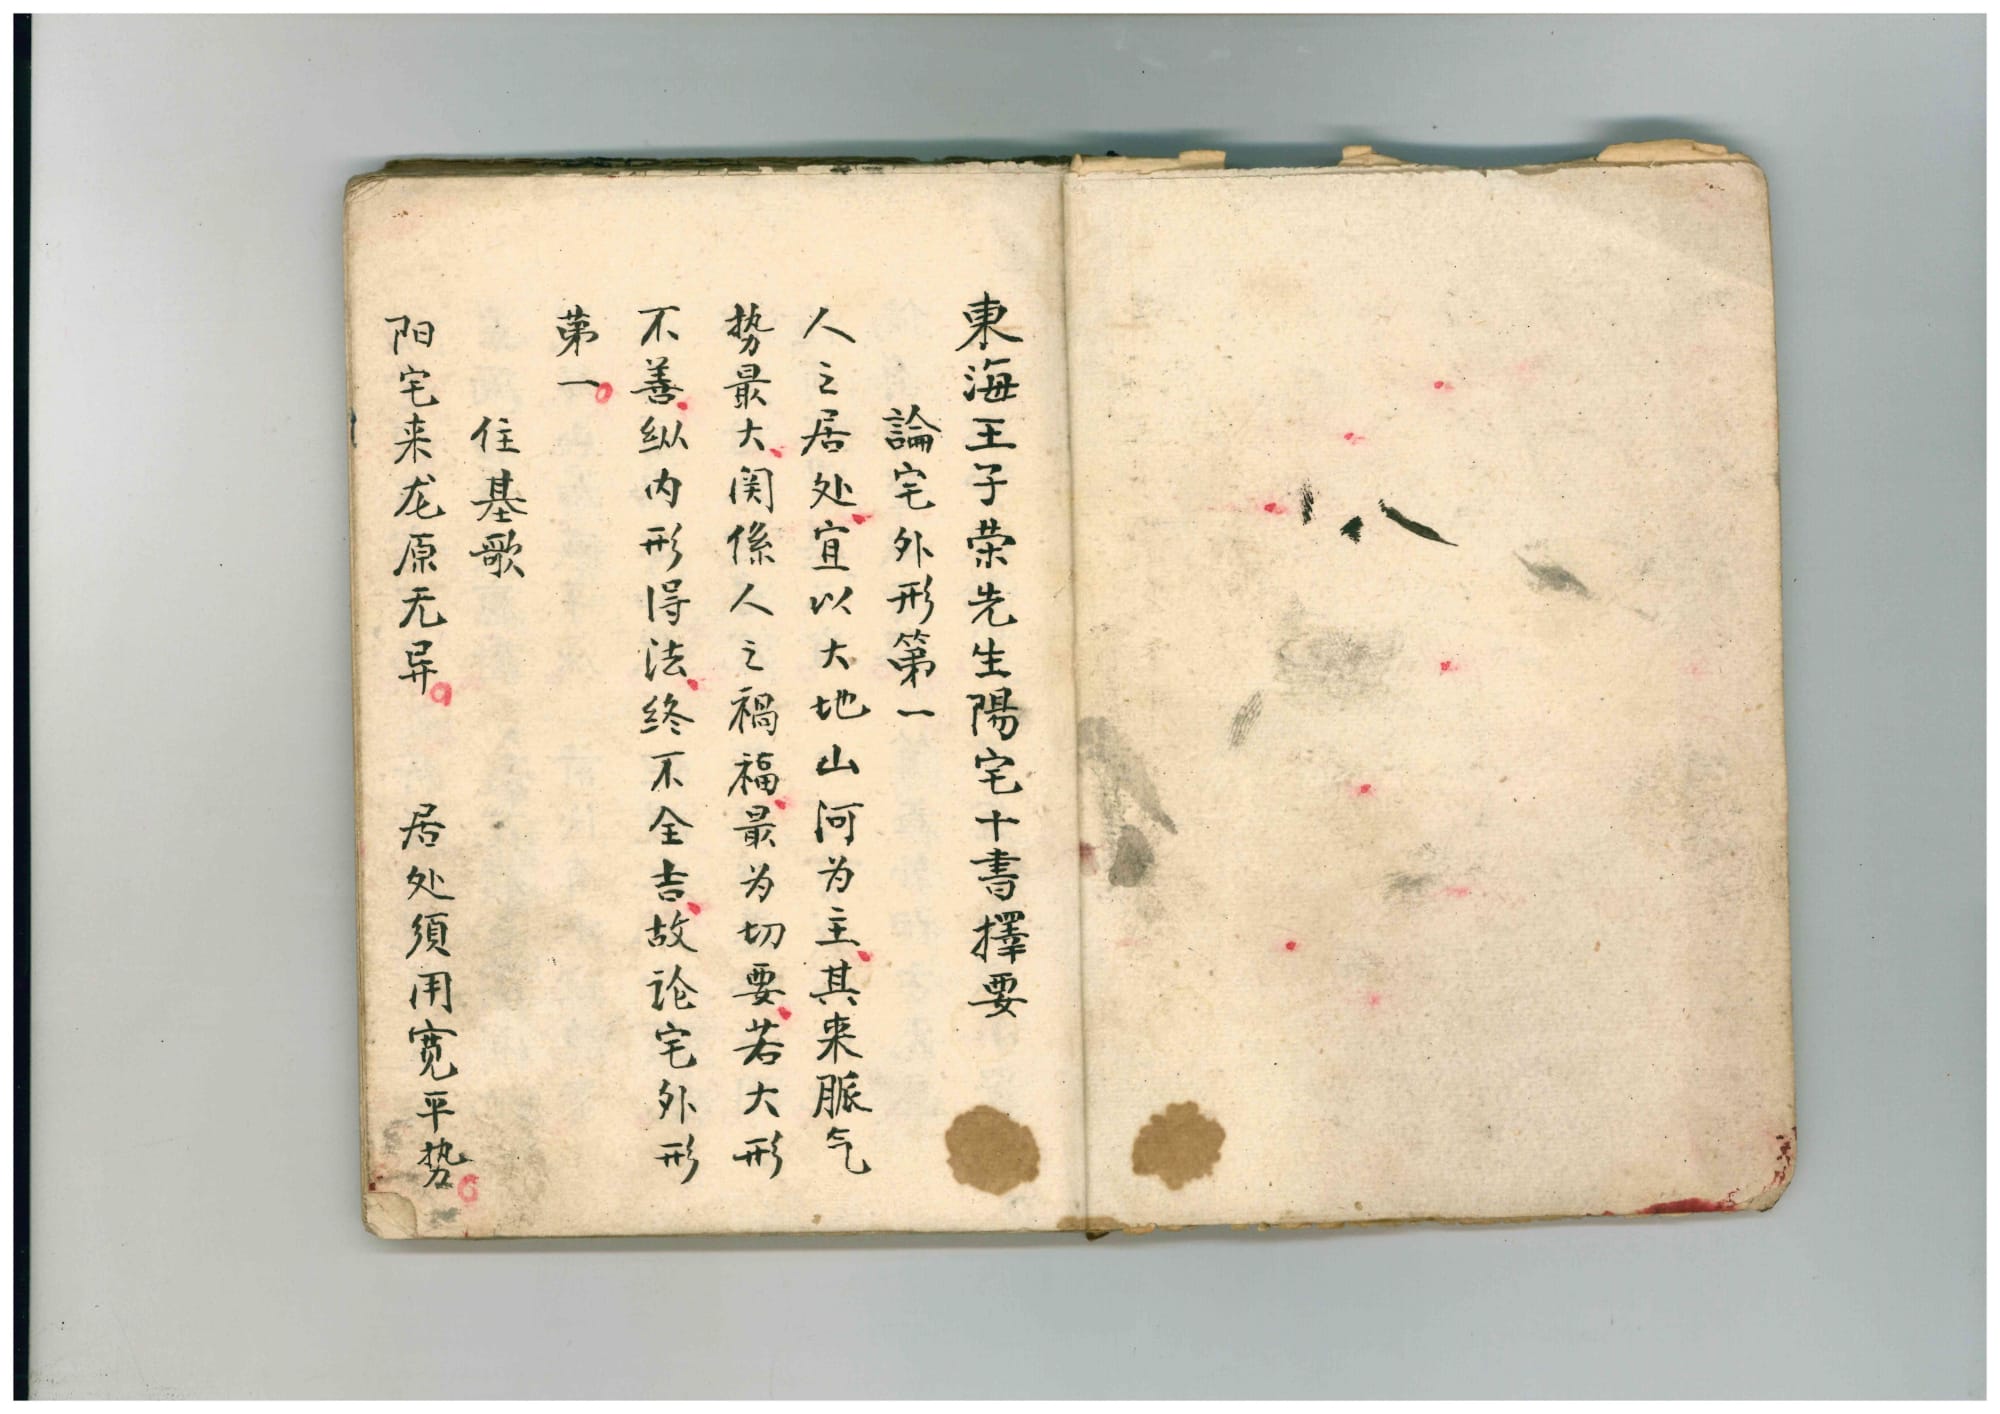 東海王子荣先生陽宅十書擇要
論宅外形第一
人之居处宜以大地山河为主其来脈气
势最大関係人之禍福最为切要若大形
不善纵内形得法终不全吉故论宅外形
第一
住基歌
阳宅来龙原无异　居处須用宽平势